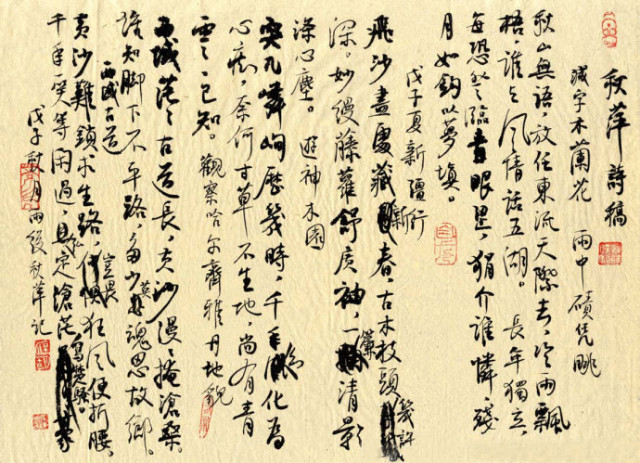 秋萍詩稿
减字木蘭花 雨中磧凭眺
秋山無語，放任東流天際去，冷雨飄
梧，誰與風情話五湖。 長年獨立，
每恐登臨青眼思，狷介誰憐，殘
月如鈎以夢填。
戊子夏新疆行
飛沙盡處藏新春，古木枝頭幾許
深。妙縵藤蘿舒廣袖，一簾清影
滌心塵。 遊神木園
突兀嶙峋歷幾時，千年幻化為
心痴，奈何寸草不生地，尚有青
雲已知。觀察哈尔齊雅丹地貌
西域茫茫古道長，黄沙漫漫掩滄桑。
誰知脚下不平路，多少英魂思故鄉。
西域古道
黄沙難鎖求生路，豈畏狂風便折腰，
千年一笑等閑過，定滄茫寫楚騷。
戊子秋月雨後秋萍記